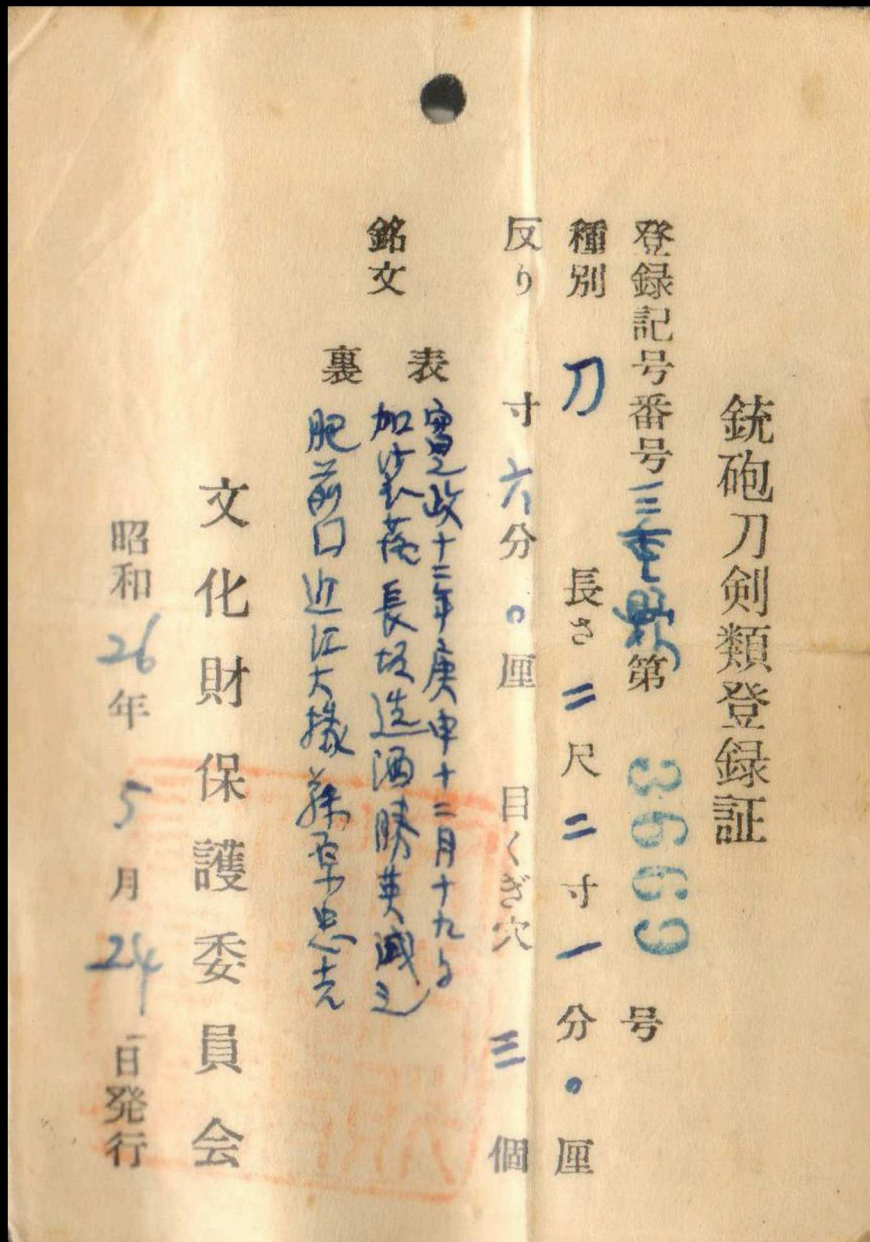 銃砲刀剣類登録証
登録記号番号三重県第 3669 号
種別 刀 長さ 二尺二寸一分〇厘
反り 寸六分〇厘 目くぎ穴 三個
銘文
表 寛政十二年庚申十二月十九日
長坂造酒勝英 之
裏 肥前口近江大掾藤原忠
文化財保護委員会
昭和26年5月24日発行